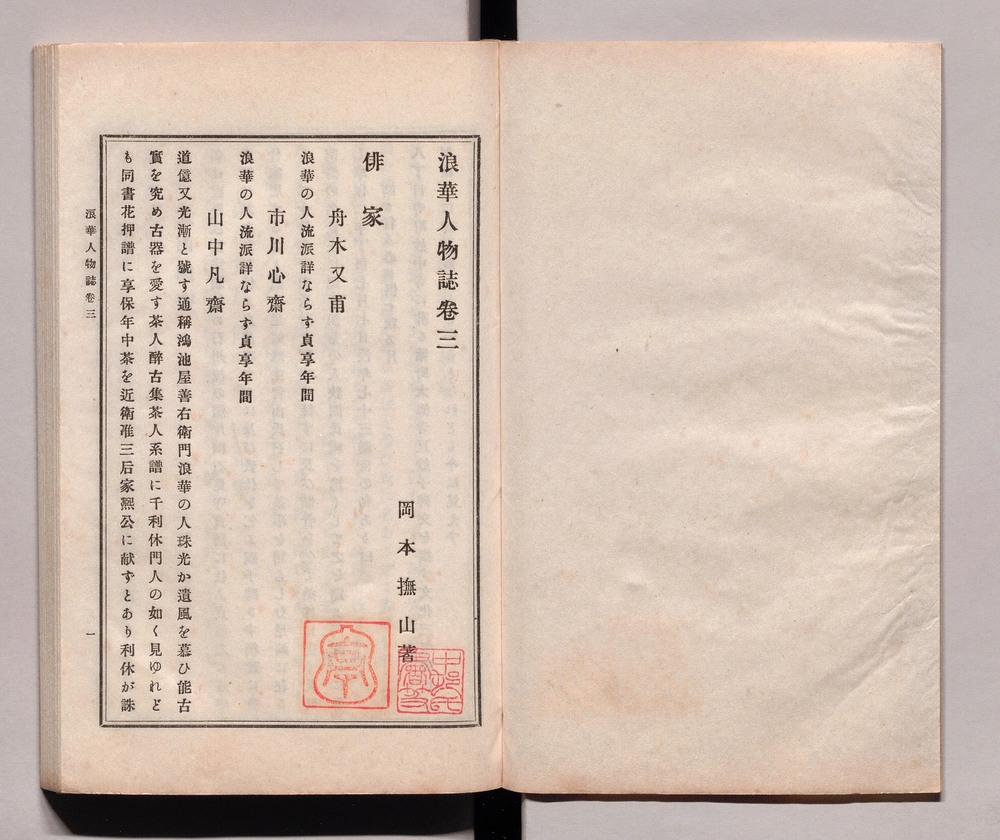 浪華人物誌卷三
岡本撫山著
俳家
舟木又甫
浪華の人流派詳ならず貞享年間
市川心齋
浪華の人流派詳ならず貞享年間
山中凡齋
道億又光漸と號す通稱鴻池屋善右衛門浪華の人珠光か遺風を慕ひ能古
實を究め古器を愛す茶人醉古集茶人系譜に千利休門人の如く見ゆれど
も同書花押譜に享保年中茶を近衛准三后家熈公に献すとあり利休が誅
浪華人物誌卷三
一